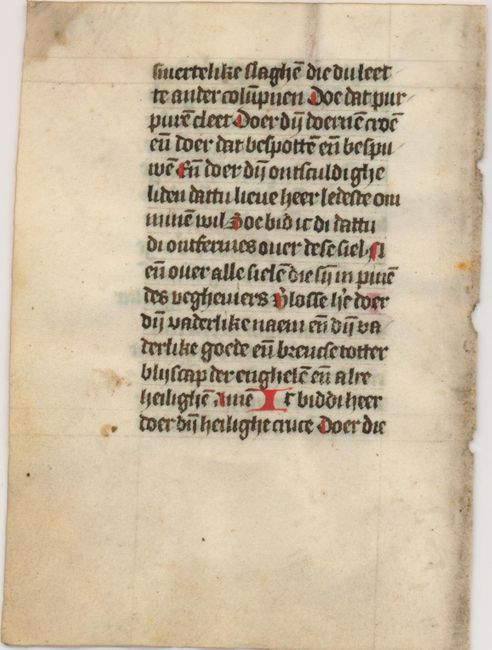 smertelike slaghē die du leet
te ander colūpnen Doe dat pur
purē cleet Doer dij doernē croē
eñ doer dat bespottē eñ bespu
wē Eñ doer dij ontsculdighe
liden dattu lieue heer ledeste om
minē wil Doe bid ic di dattu
di ontfermes ouer dese siel
eñ ouer alle sielē die sij in pinē
des vegheuiers v̄losse h̄e doer
dij vaderlike naem eñ dij va
derlike goede eñ brencse totter
blijscap der enghelē eñ alre
heilighē Amē Ic bid di heer
doer dij heilighe cruce Doer die